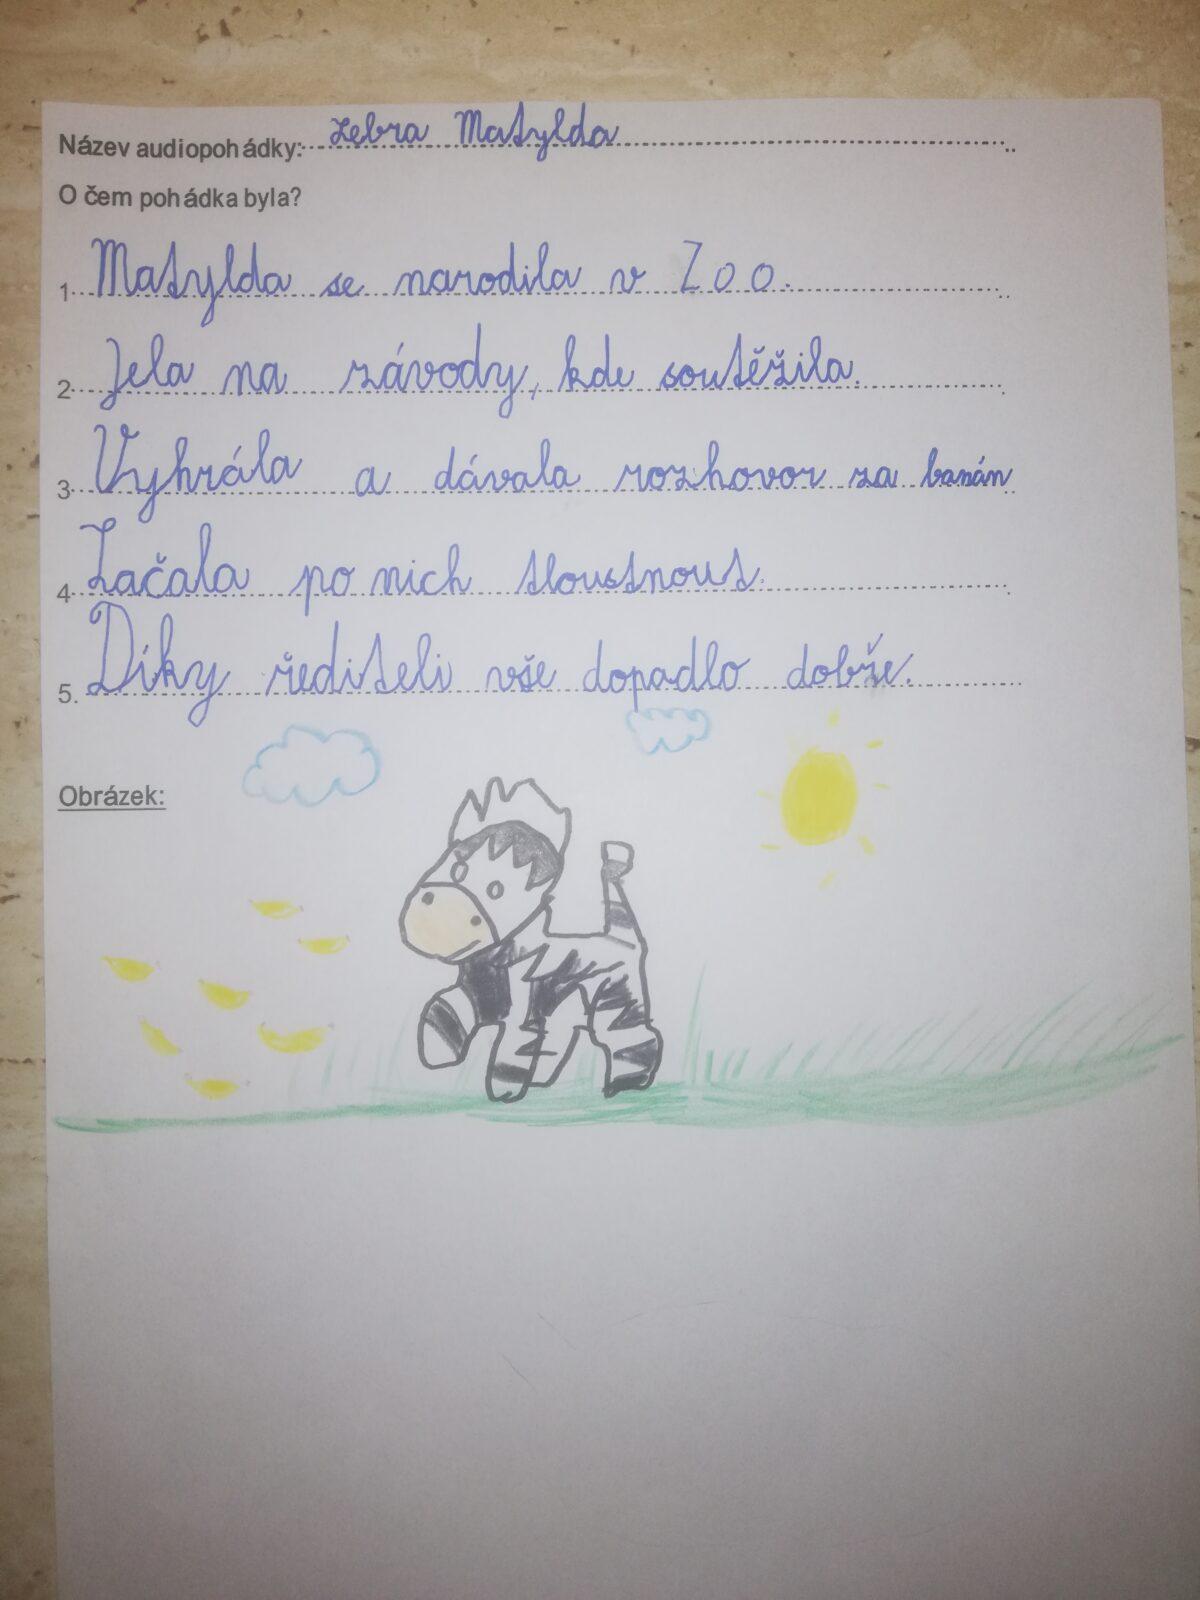 Název audiopohádky: zebra Matylda
O čem pohádka byla?
1. Matylda se narodila v Zoo.
2. Jela na závody, kde soutěžila.
3. Vyhrála a dávala rozhovor za banán
4. Začala po nich tloustnout.
5. Díky řediteli vše dopadlo dobře.
Obrázek: